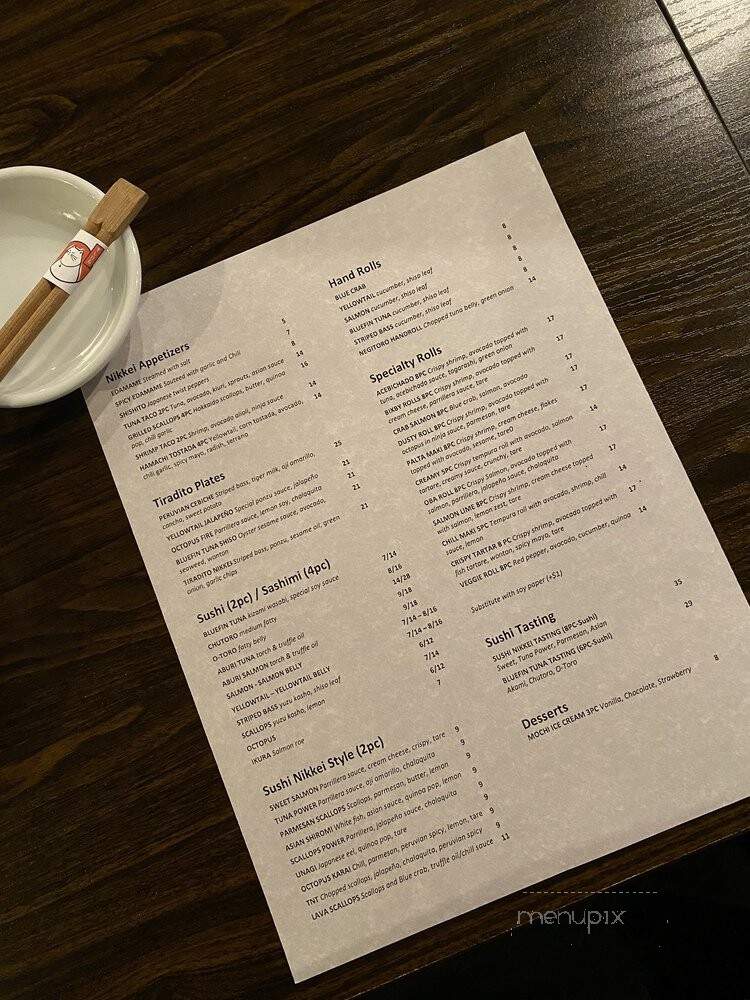 Nikkei Appetizers
EDAMAME Steamed with salt 5
SPICY EDAMAME Sauteed with garlic and Chili 7
SHISHITO Japanese twist peppers 8
TUNA TACO 2PC Tuna, avocado, kiuri, sprouts, asian sauce 14
GRILLED SCALLOPS 4PC Hokkaido scallops, butter, quinoa 16
pop, chili garlic
SHRIMP TACO 2PC Shrimp, avocado alioli, ninja sauce 14
HAMACHI TOSTADA 4PC Yellowtail, corn tostada, avocado, 14
chili garlic, spicy mayo, radish, serrano
Tiradito Plates
PERUVIAN CEBICHE Striped bass, tiger milk, aji amarillo, 25
cancha, sweet potato
YELLOWTAIL JALAPEÑO Special ponzu sauce, jalapeño 21
OCTOPUS FIRE Parrillera sauce, lemon soy, chalaquita 21
BLUEFIN TUNA SHISO Oyster sesame sauce, avocado, 21
seaweed, wonton
TIRADITO NIKKEI Striped bass, ponzu, sesame oil, green 21
onion, garlic chips
Sushi (2pc) / Sashimi (4pc)
BLUEFIN TUNA kizami wasabi, special soy sauce 7/14
CHUTORO medium fatty 8/16
O-TORO fatty belly 14/28
ABURI TUNA torch & truffle oil 9/18
ABURI SALMON torch & truffle oil 9/18
SALMON - SALMON BELLY 7/14 – 8/16
YELLOWTAIL – YELLOWTAIL BELLY 7/14 – 8/16
STRIPED BASS yuzu kosho, shiso leaf 6/12
SCALLOPS yuzu kosho, lemon 7/14
OCTOPUS 6/12
IKURA Salmon roe 7
Sushi Nikkei Style (2pc)
SWEET SALMON Parrillera sauce, cream cheese, crispy, tare 9
TUNA POWER Parrillera sauce, aji amarillo, chalaquita 9
PARMESAN SCALLOPS Scallops, parmesan, butter, lemon 9
ASIAN SHIROMI White fish, asian sauce, quinoa pop, lemon 9
SCALLOPS POWER Parrillera, jalapeña sauce, chalaquita 9
UNAGI Japanese eel, quinoa pop, tare 9
OCTOPUS KARAI Chili, parmesan, peruvian spicy, lemon, tare 9
TNT Chopped scallops, jalapeño, chalaquita, peruvian spicy 9
LAVA SCALLOPS Scallops and Blue crab, truffle oil/chili sauce 11
Hand Rolls
BLUE CRAB 8
YELLOWTAIL cucumber, shiso leaf 8
SALMON cucumber, shiso leaf 8
BLUEFIN TUNA cucumber, shiso leaf 8
STRIPED BASS cucumber, shiso leaf 8
NEGITORO HANDROLL Chopped tuna belly, green onion 14
Specialty Rolls
ACEBICHADO 8PC Crispy shrimp, avocado topped with 17
tuna, acebichado sauce, togarashi, green onion
BIXBY ROLLS 8PC Crispy shrimp, avocado topped with 17
cream cheese, parrillera sauce, tare
CRAB SALMON 8PC Blue crab, salmon, avocado 17
DUSTY ROLL 8PC Crispy shrimp, avocado topped with 17
octopus in ninja sauce, parmesan, tare
PALTA MAKI 8PC Crispy shrimp, cream cheese, flakes 17
topped with avocado, sesame, tare
CREAMY 5PC Crispy tempura roll with avocado, salmon 14
tartare, creamy sauce, crunchy, tare
ORA ROLL 8PC Crispy Salmon, avocado topped with 17
salmon, parrillera, jalapeño sauce, chalaquita
SALMON LIME 8PC Crispy shrimp, cream cheese topped 17
with salmon, lemon zest, tare
CHILL MAKI 5PC Tempura roll with avocado, shrimp, chili 14
sauce, lemon
CRISPY TARTAR 8 PC Crispy shrimp, avocado topped with 17
fish tartare, wontan, spicy mayo, tare
VEGGIE ROLL 8PC Red pepper, avocado, cucumber, quinoa 14
Substitute with soy paper (+$1)
Sushi Tasting
SUSHI NIKKEI TASTING (8PC-Sushi) 35
Sweet, Tuna Power, Parmesan, Asian
BLUEFIN TUNA TASTING (6PC-Sushi) 29
Akami, Chutoro, O-Toro
Desserts
MOCHI ICE CREAM 3PC Vanilla, Chocolate, Strawberry 8
menupix